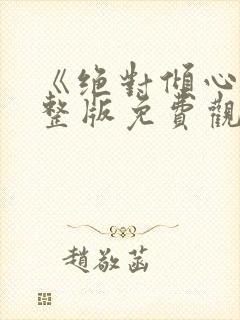 《絕對傾心
整版免費觀
趙敬菡